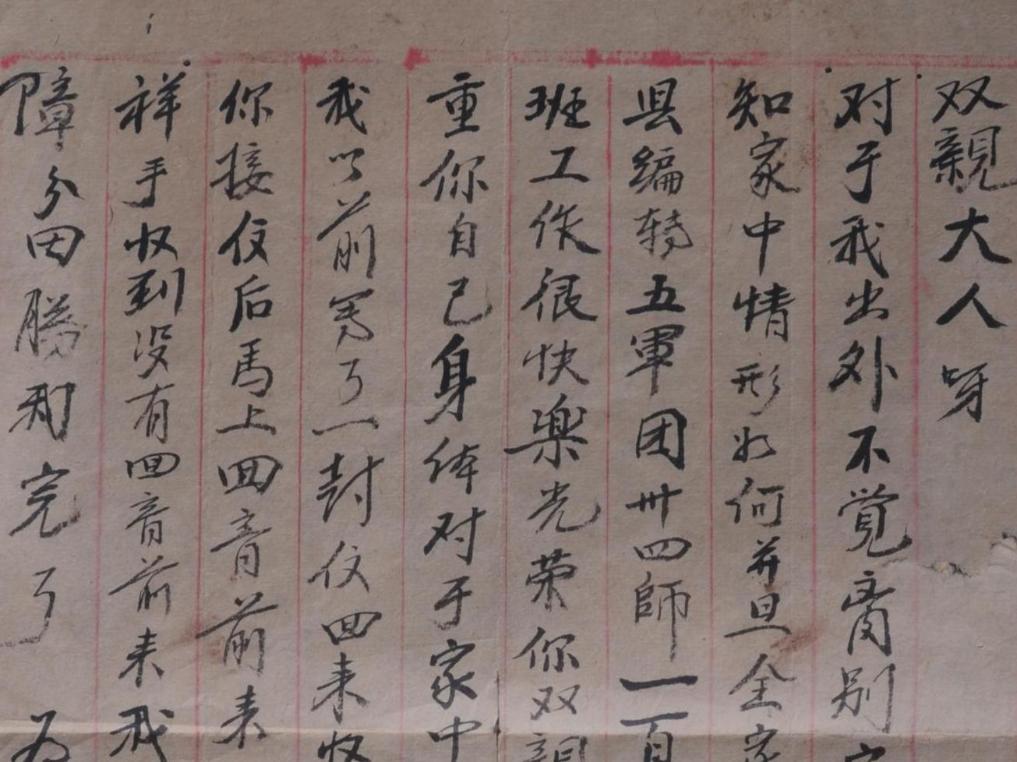 双親大人呀
对于我出外不覚离别
知家中情形如何并且全家
县编转五軍团卅四師一百
班工作很快樂光荣你双親
重你自己身体对于家中
我以前写了一封仪回来收
你接仪后馬上回音前来
祥手收到没有回音前来我
障分田勝利完了 为